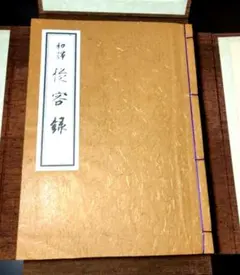 和譯 從容錄